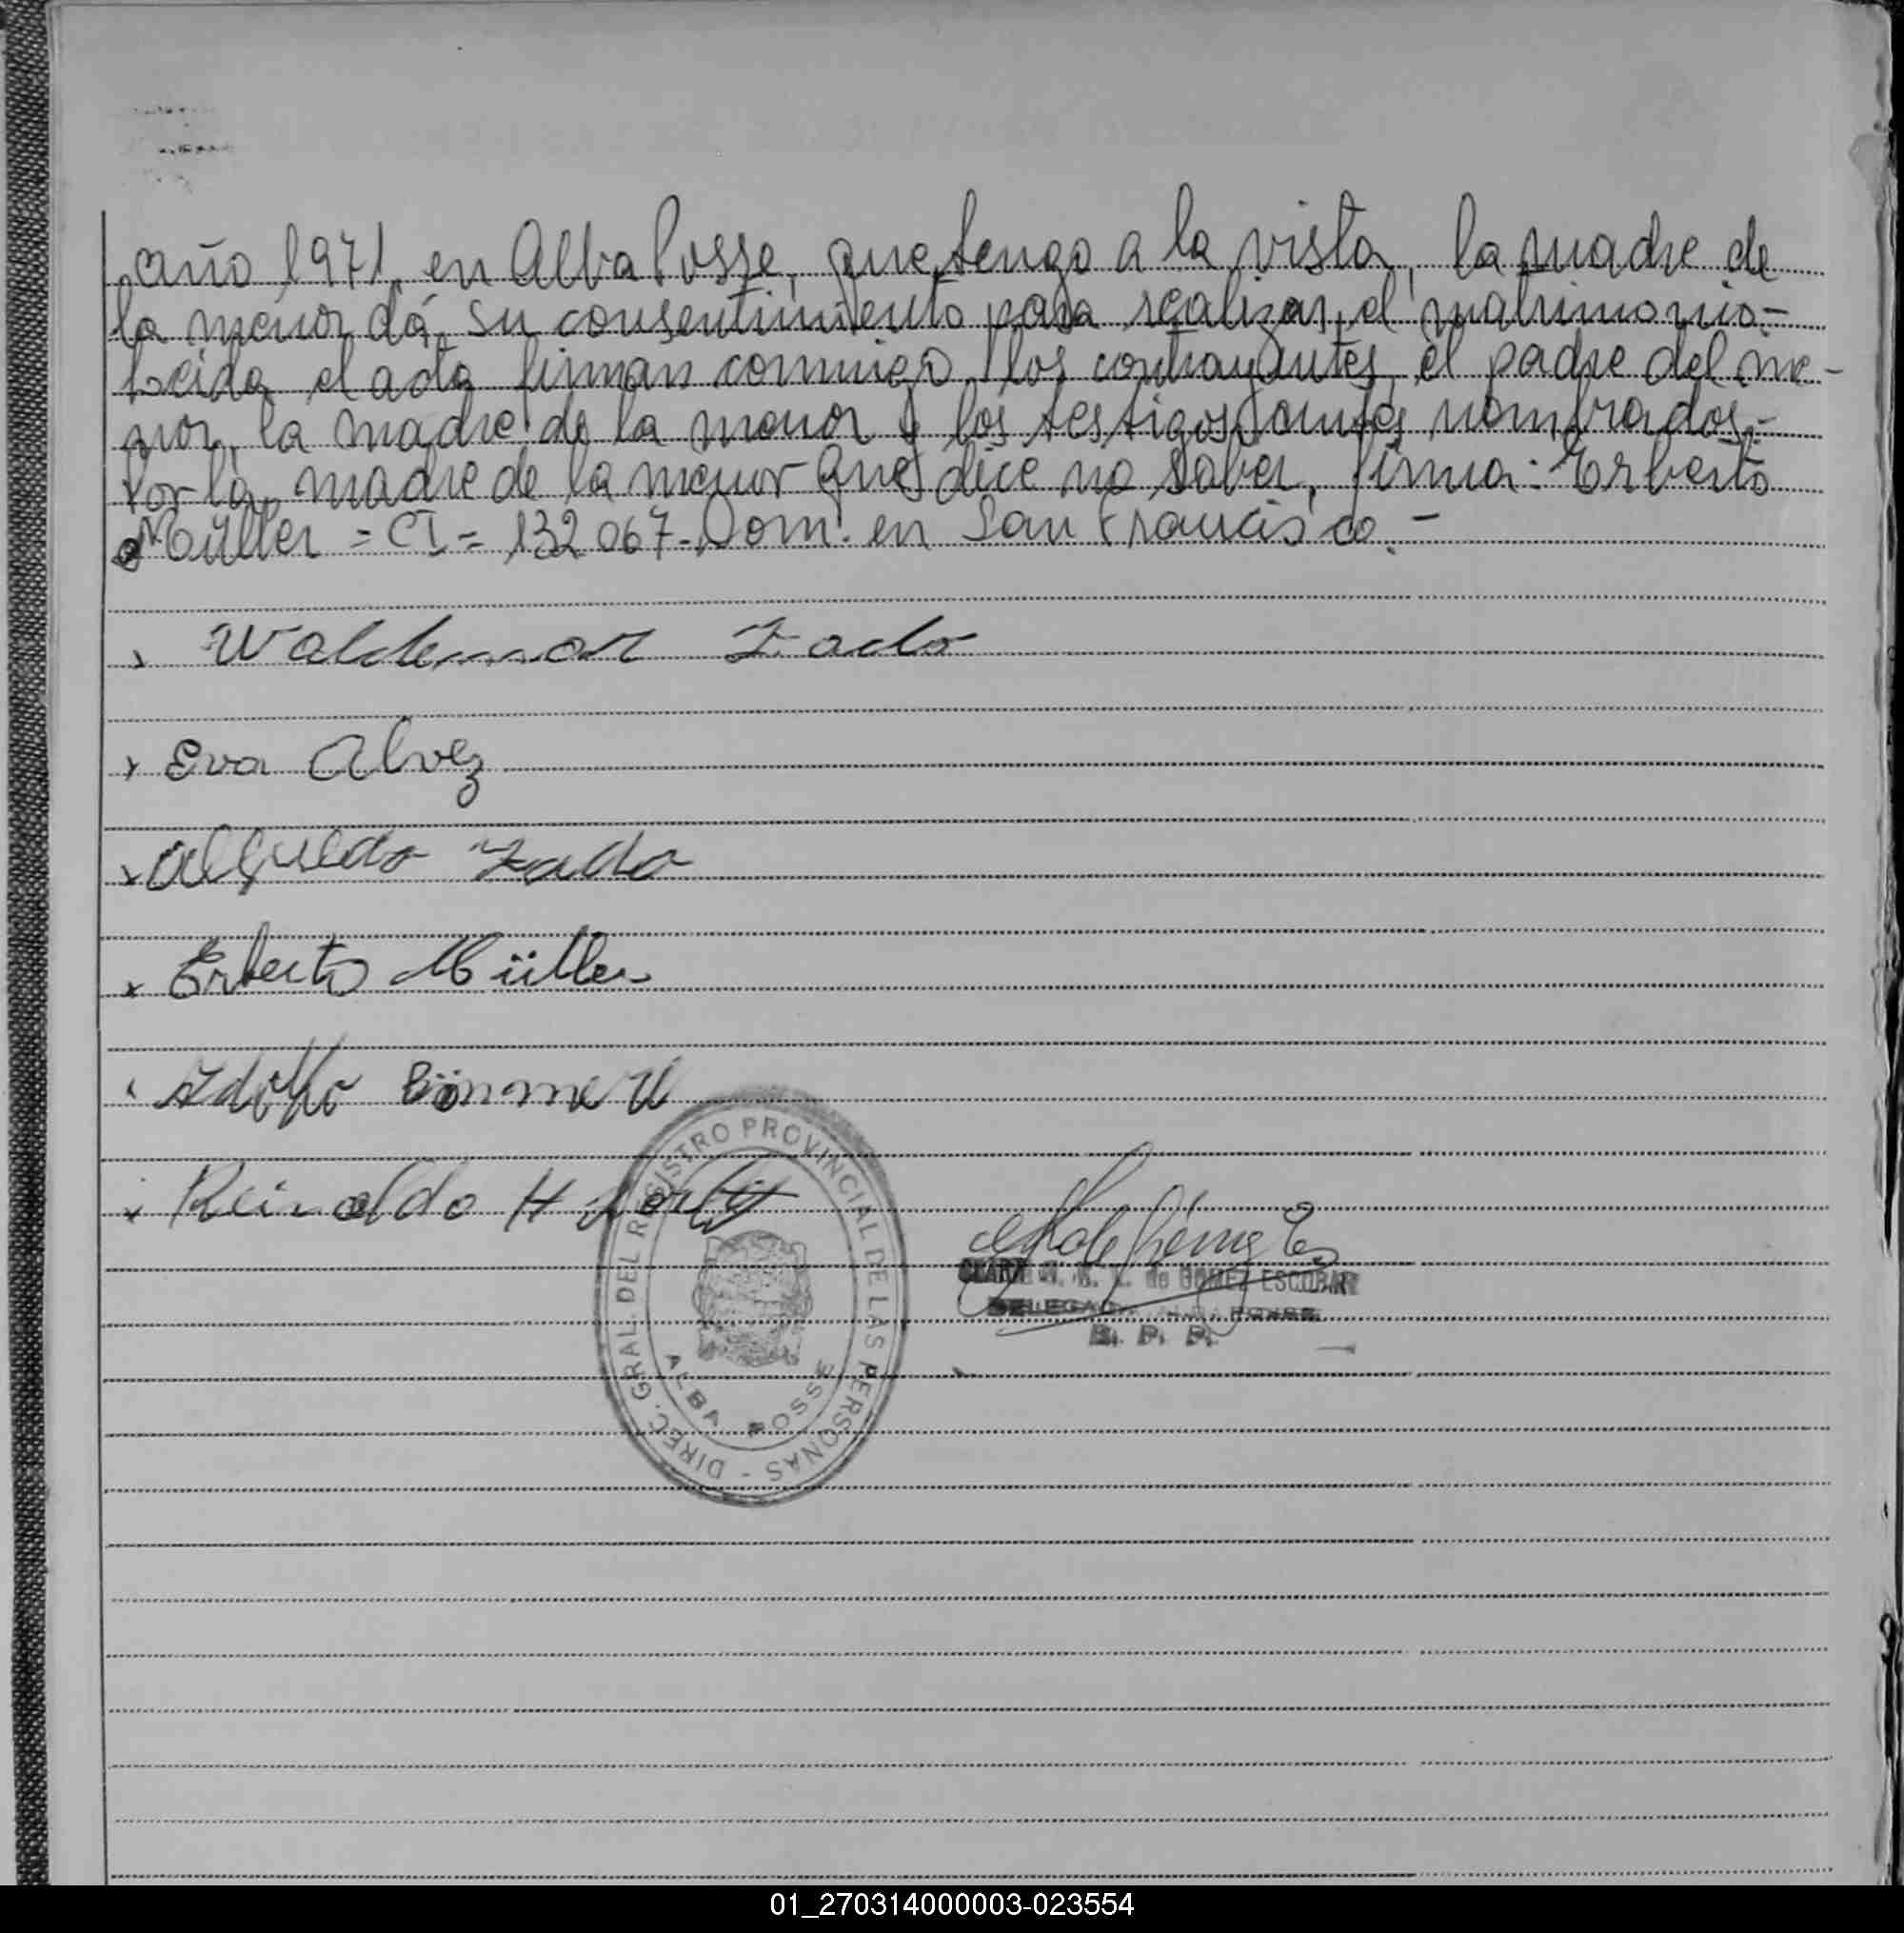 año 1971, en Alba Posse, que tengo a la vista, la madre de
la menor dá su consentimiento para realizar el matrimonio.-
Leida el acta firman conmigo, los contrayentes, el padre del me-
nor, la madre de la menor y los testigos antes nombrados.-
Por la madre de la menor que dice no saber, firma: Erberto
Müller = CI = 132067. Dom. en San Francisco.-
Waldemar Zado
Eva Alvez
Alfredo Zado
Erberto Müller
Adolfo
Reinaldo H
DIREC. GRAL. DEL REGISTRO PROVINCIAL DE LAS PERSONAS -
ALBA POSSE
de GOMEZ ESCOBAR
DELEGADA ALBA POSSE
R. P. P.
01_270314000003-023554